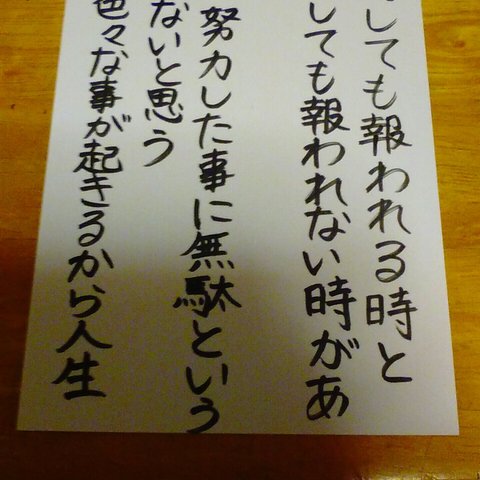 しても報われる時と
しても報われない時があ
努力した事に無駄という
ないと思う
色々な事が起きるから人生